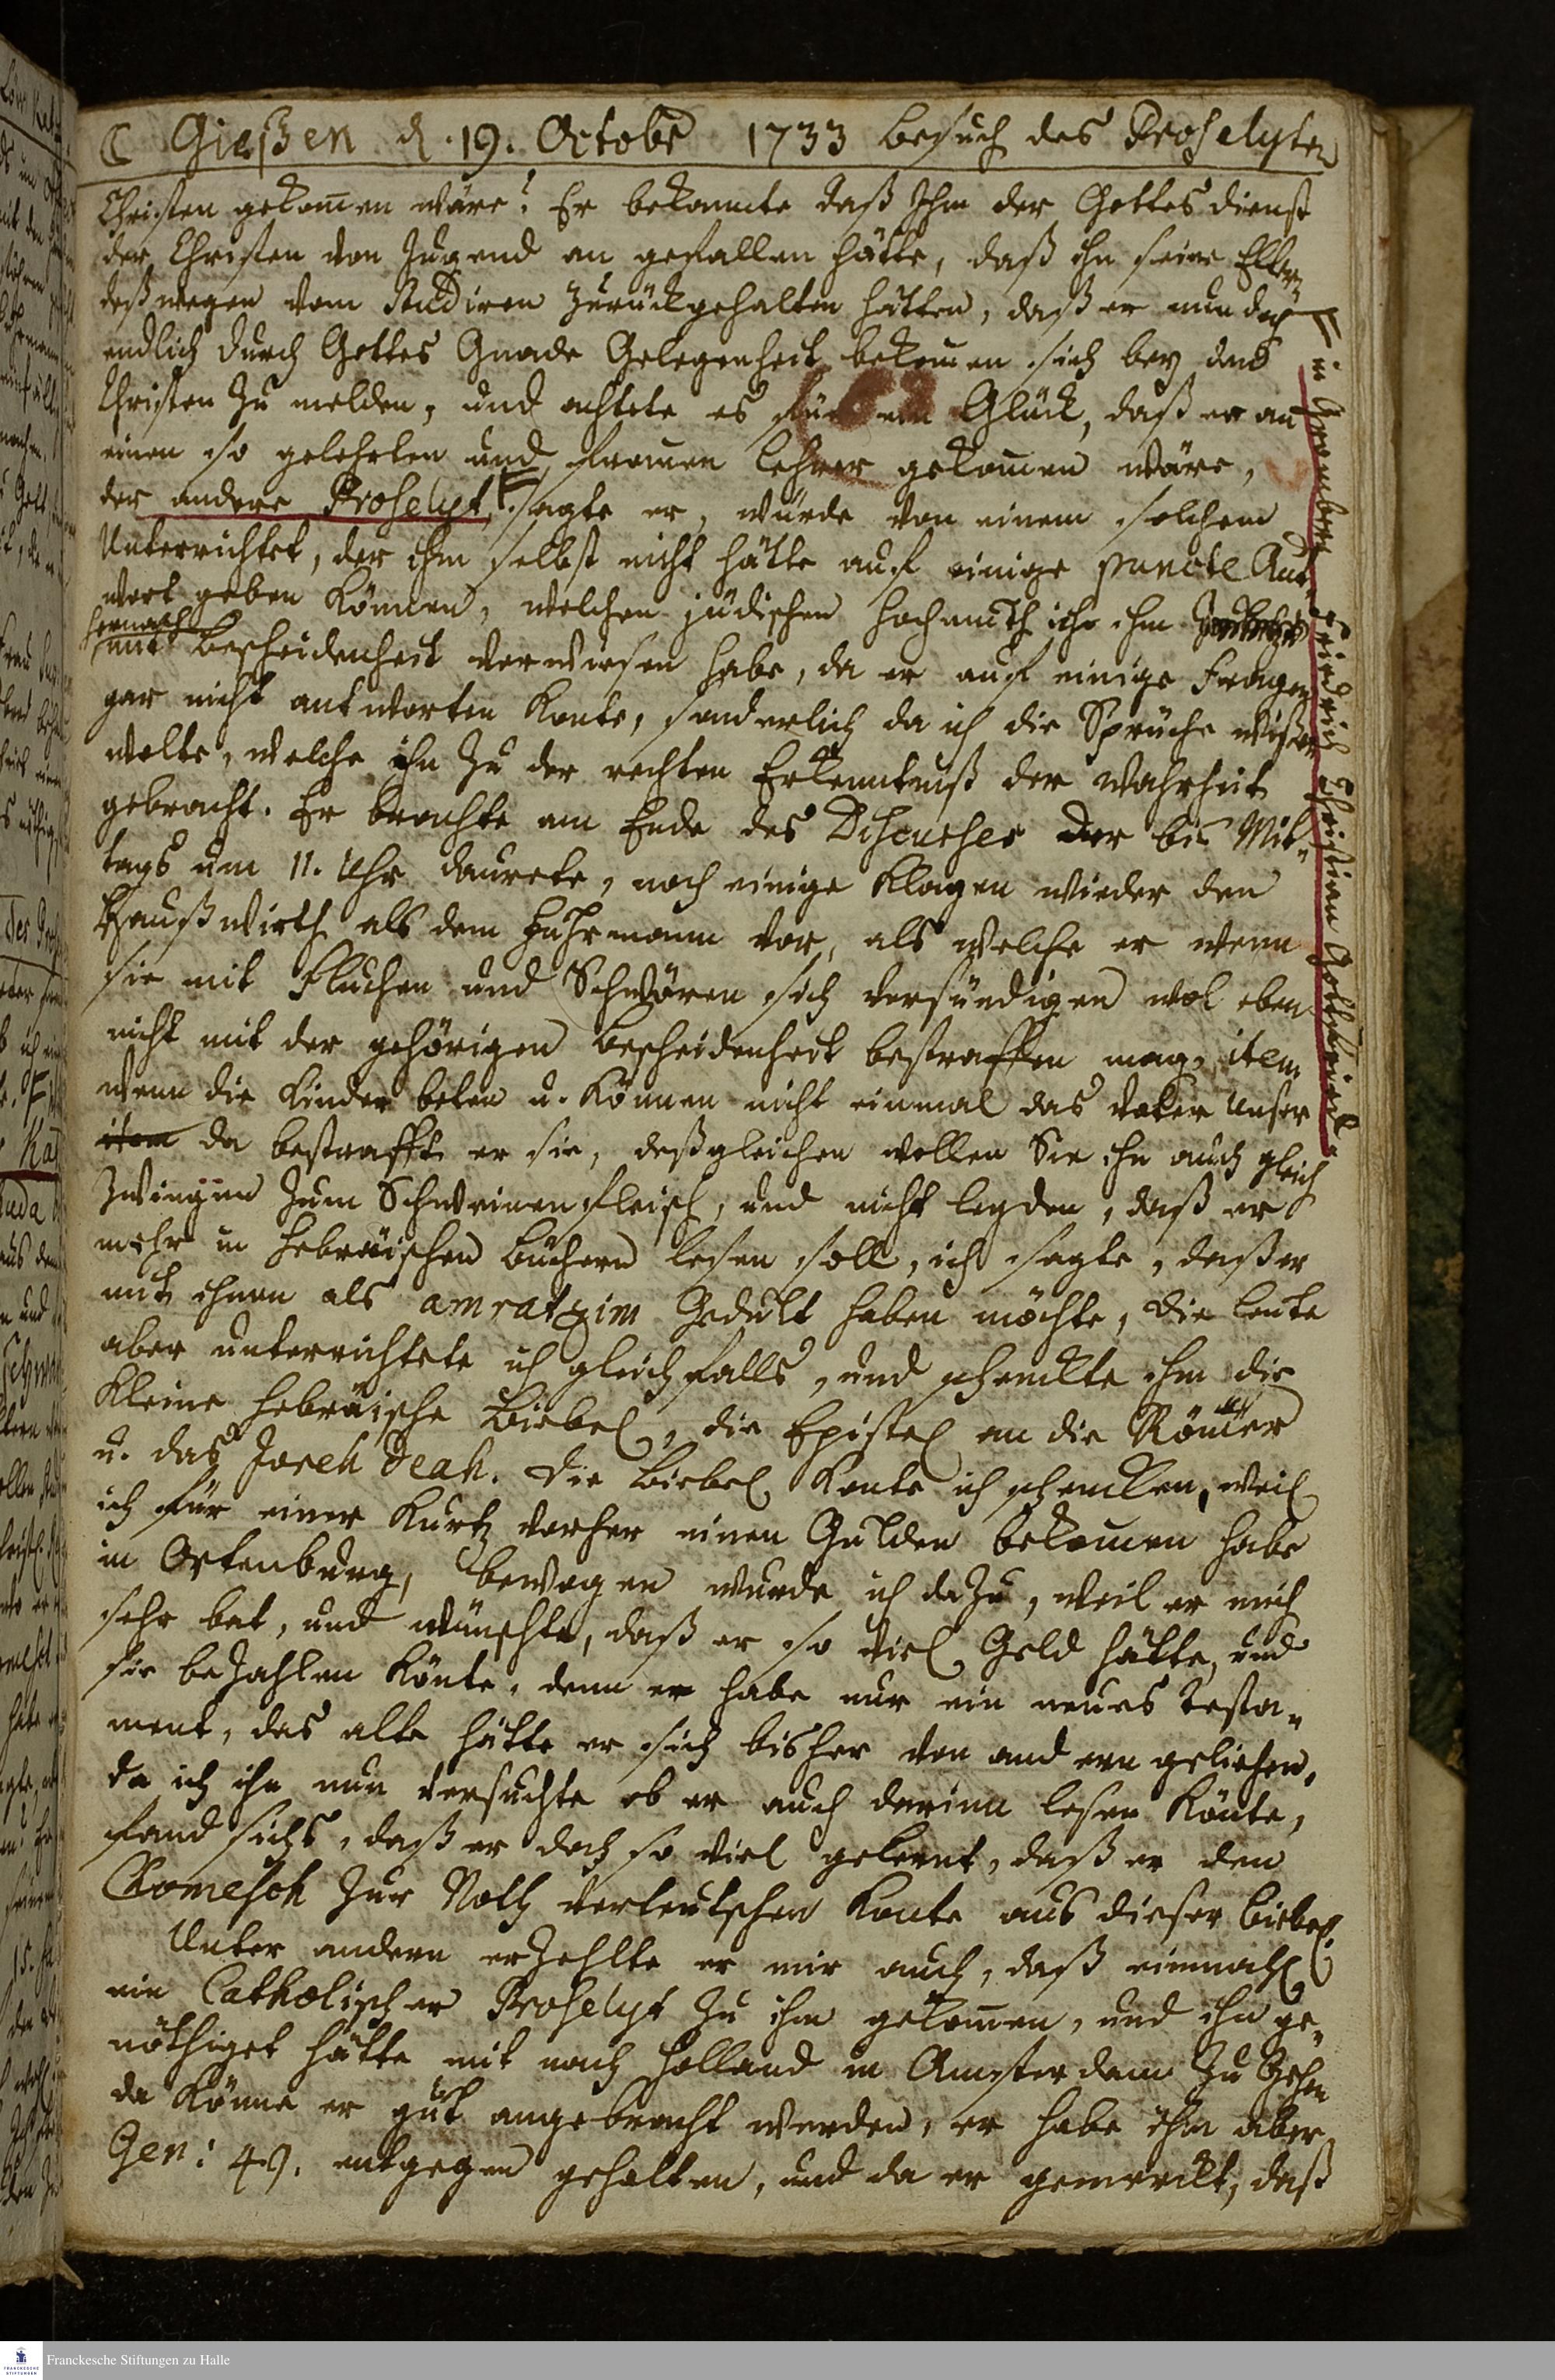 ☾ Gießen d. 19. Octobr 1733 Besuch des Proselyten
Christen gekom̅en wäre? Er bekannte daß Ihm der Gottesdienst
der Christen von Jugend an gefallen hätte, daß ihn seine Eltern
deßwegen vom Studiren zurückgehalten hätten, daß er nun doch
endlich durch Gottes Gnade Gelegenheit bekom̅en sich bey den
Christen zu melden, und achtete es für ein Glück, daß er an
einen so gelehrten und from̅en Lehrer gekom̅en wäre,
der andere Proselyt, F sagte er, würde von einem solchem
Unterrichtet, der ihm selbst nicht hätte auf einige puncte Ant-
wort geben können, welchen jüdischen Hochmuth ich ihm
hernach
mit Bescheidenheit verwiesen habe, da er auf einige Fragen
gar nicht antworten konte, sonderlich da ich die Sprüche wißen
wolte, welche ihn zu der rechten Erkenntniß der Wahrheit
gebracht. Er brachte am Ende des Discurses der bis Mit-
tags um 11. Uhr daurete, noch einige Klagen wieder den
Haußwirth als dem Fuhrmann vor, als welche er wenn
sie mit Fluchen und Schwören sich versündigen wol eben
nicht mit der gehörigen Bescheidenheit bestraffen mag, item
wenn die Kinder beten u. können nicht einmal das Vater Unser
item da bestrafft er sie, deßgleichen wollen Sie ihn auch gleich
zwingen zum Schweinenfleisch, und nicht leyden, daß er
mehr in Hebräischen Büchern lesen soll, ich sagte, daß er
mit ihnen als amratzim Gedult haben möchte, die Leute
aber unterrichtete ich gleichfalls, und schenckte ihm die
kleine Hebräische Biebel, die Epistel an die Römer
u. das Joreh Deah. Die Biebel konte ich schencken, weil
ich für einer kurtz vorher einen Gulden bekom̅en habe
in Ortenburg, bewogen wurde ich dazu, weil er mich
sehr bat, und wünschte, daß er so viel Geld hätte, und
sie bezahlen könte, denn er habe nur ein neues Testa-
ment, das alte hätte er sich bisher von andern geliehen,
da ich ihn nun versuchte ob er auch darinn lesen könte,
fand sichs, daß er doch so viel gelernt, daß er den
Chomesch zur Noth verteutschen konte aus dieser Biebel.
Unter andern erzehlte er mir auch, daß einmahl
ein Catholischer Proselyt zu ihm gekom̅en, und ihn ge-
nöthiget hätte mit nach Holland in Amsterdam zu gehen
da könne er gut angebracht werden, er habe ihm aber
Gen: 49. entgegen gehalten, und da er gemerckt, daß
F in Grünberg Friedrich Christian Gottfried
Franckesche Stiftungen zu Halle